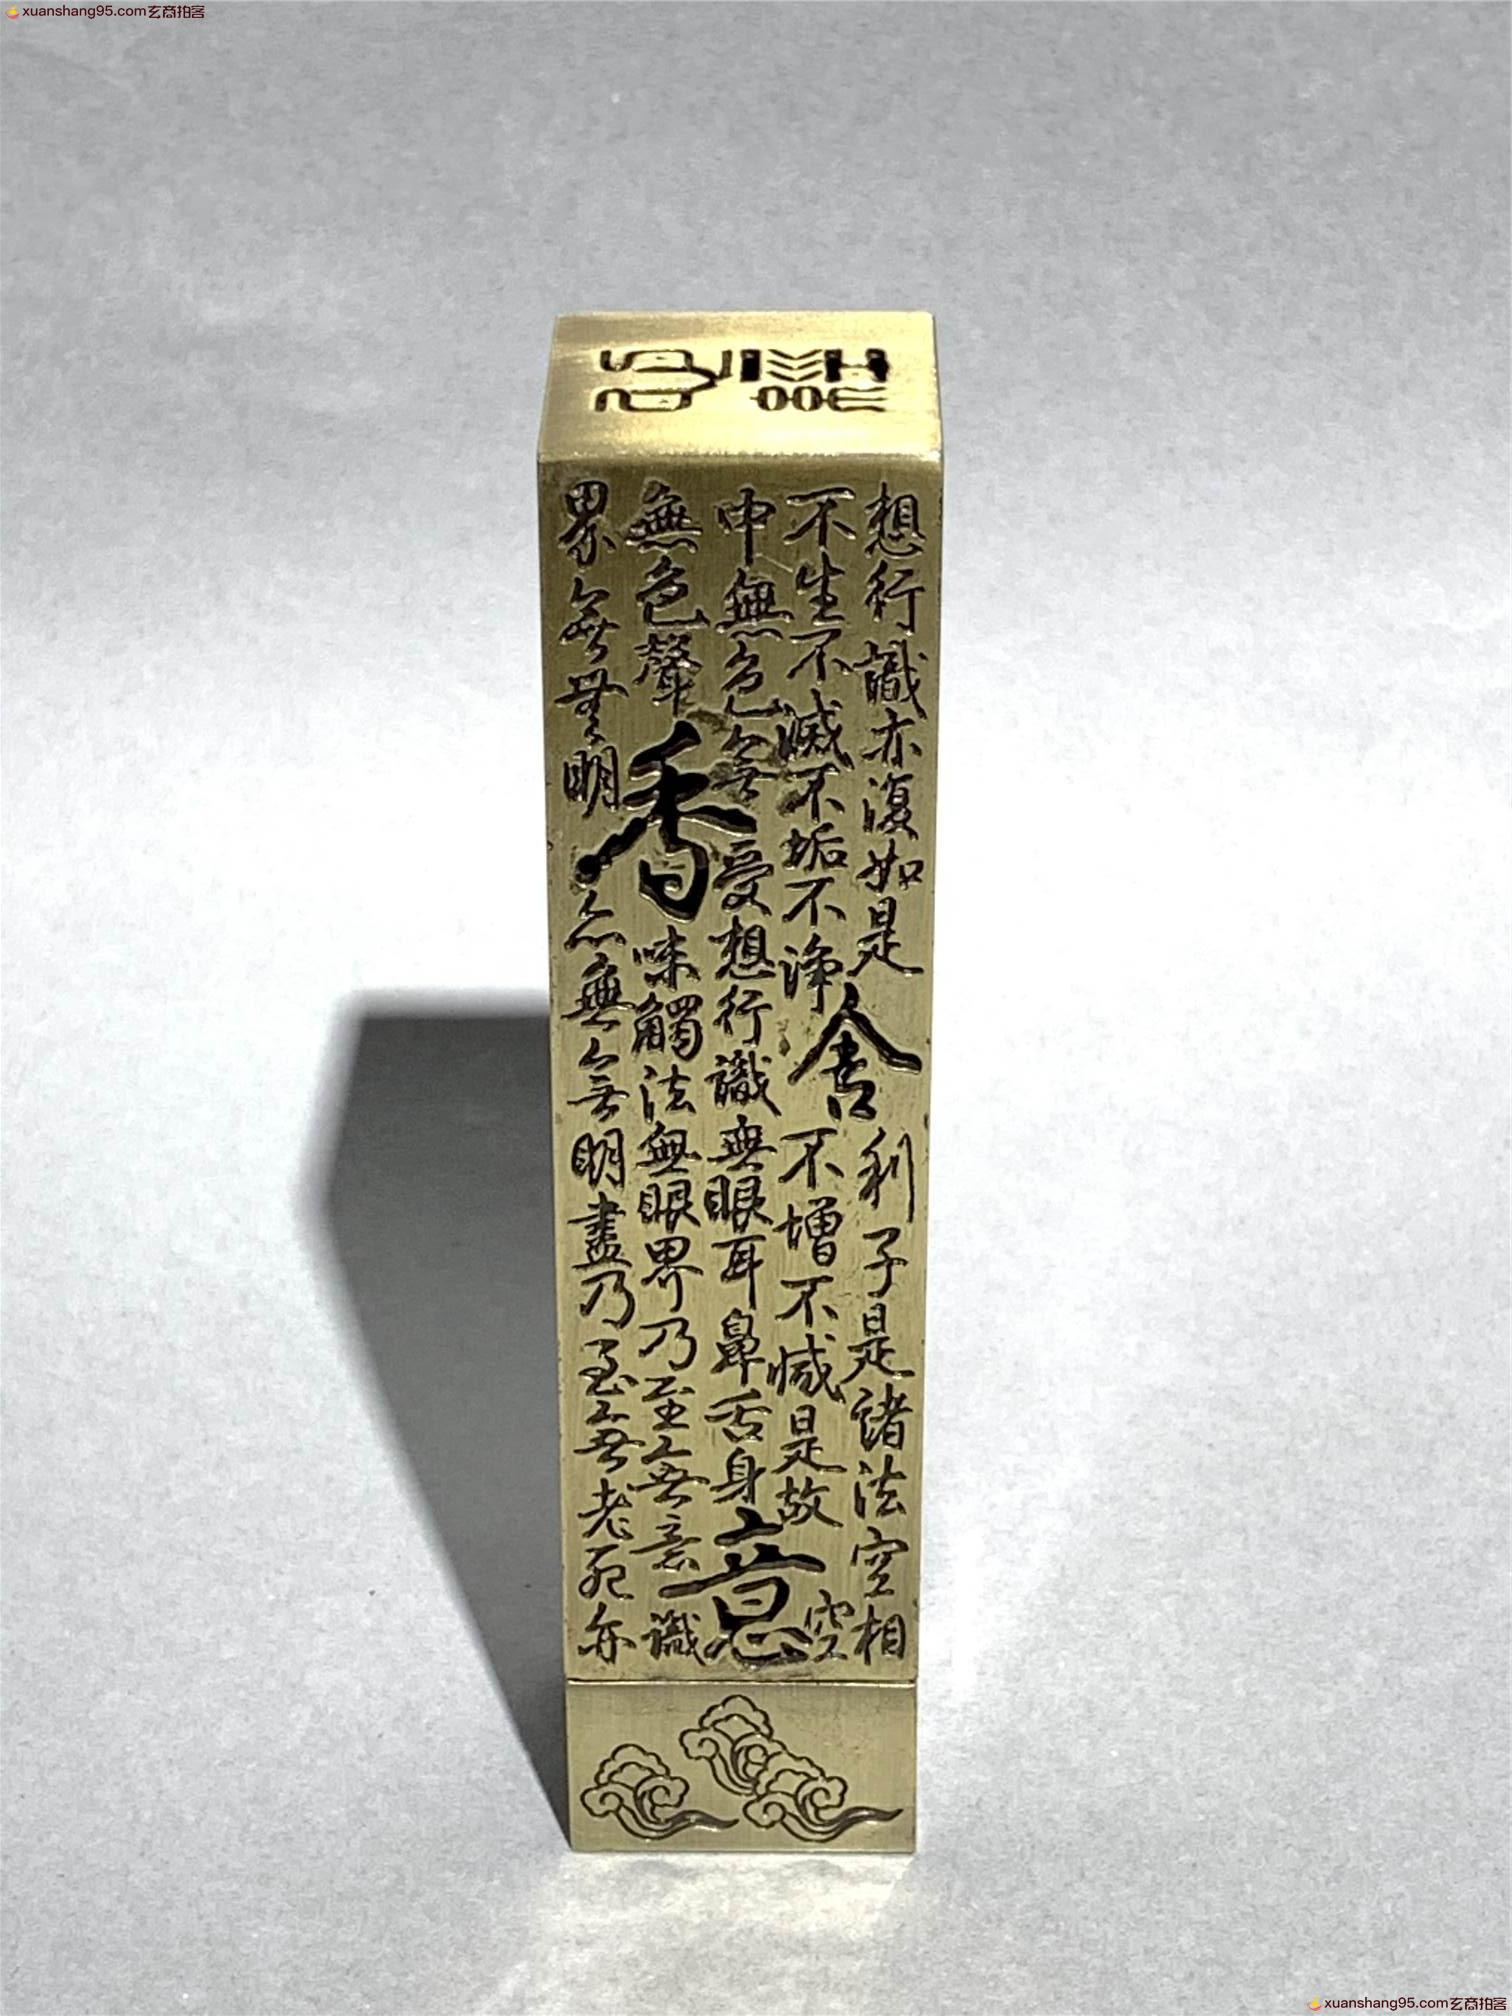 xuanshang95.com玄商拍客
想行識亦復如是舍利子是諸法空相
不生不滅不垢不淨不增不減是故空
中無色無受想行識無眼耳鼻舌身意
無色聲香味觸法無眼界乃至無意識
界無無明亦無無明盡乃至無老死亦
xuanshang95.com玄商拍客